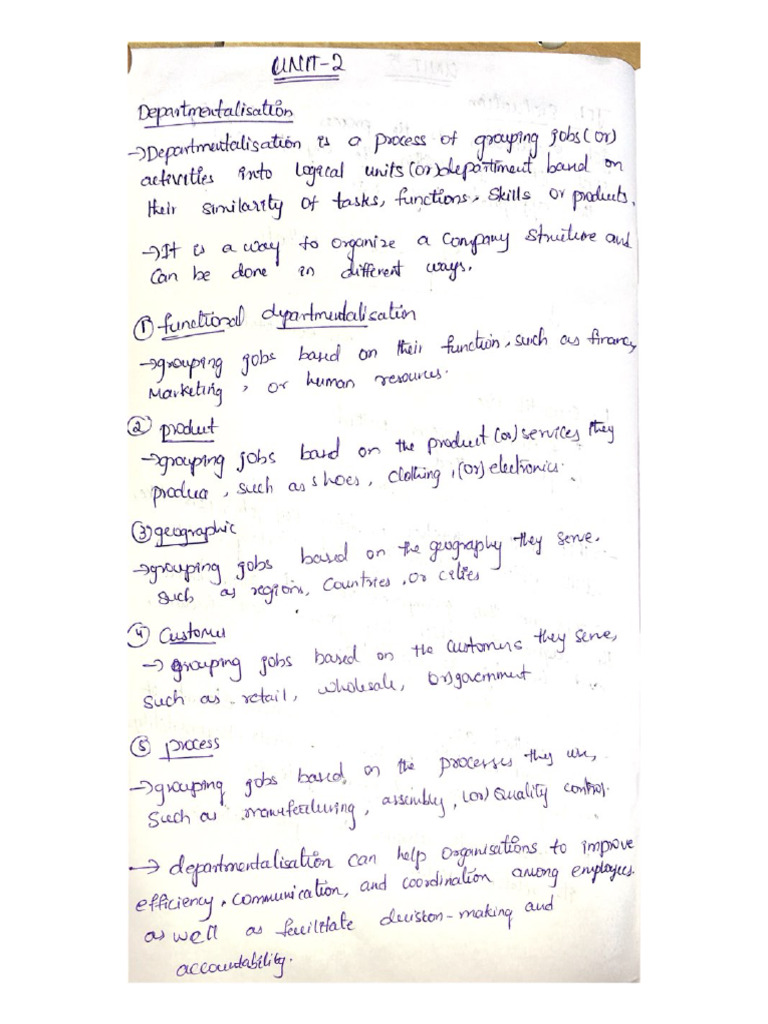 UNIT-2
Departmentalisation
→Departmentalisation is a process of grouping jobs(or)
activities into logical units(or)department band on
their similarity of tasks, functions, skills or products.
→It is a way to organize a company structure and
can be done in different ways.
① functional departmentalisation
→grouping jobs based on their function, such as finance,
Marketing, or human resources.
② product
→grouping jobs basd on the product(or)services they
produce, such as shoes, clothing,(or)electronics.
③ geographic
→grouping jobs based on the geography they serve.
such as regions, countries, or cities
④ Customer
→ grouping jobs based on the customers they serve,
such as retail, wholesale, (or)government
⑤ process
→grouping jobs based on the processes they use,
such as manufacturing, assembly, (or) Quality control.
→ departmentalisation can help organisations to improve
efficiency, communication, and coordination among employees.
as well as facilitate decision-making and
accountability.